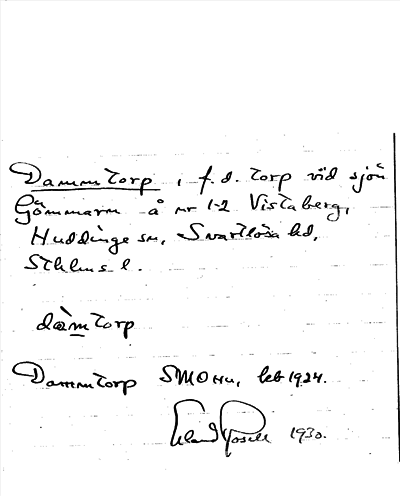 Dammtorp, f.d. torp vid sjön
Gömmarn å nr 1-2 Vistaberg,
Huddinge sn, Svartlösa hd,
Sthlms l.
dàmtorp
Dammtorp SMOHu, keb 1924.
Erland Rosell 1930.